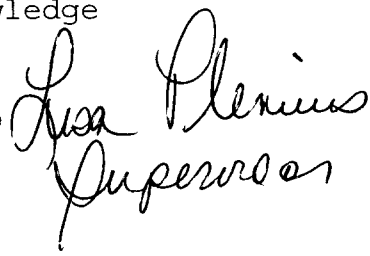 wledge
Lisa Plenius
Supervisor